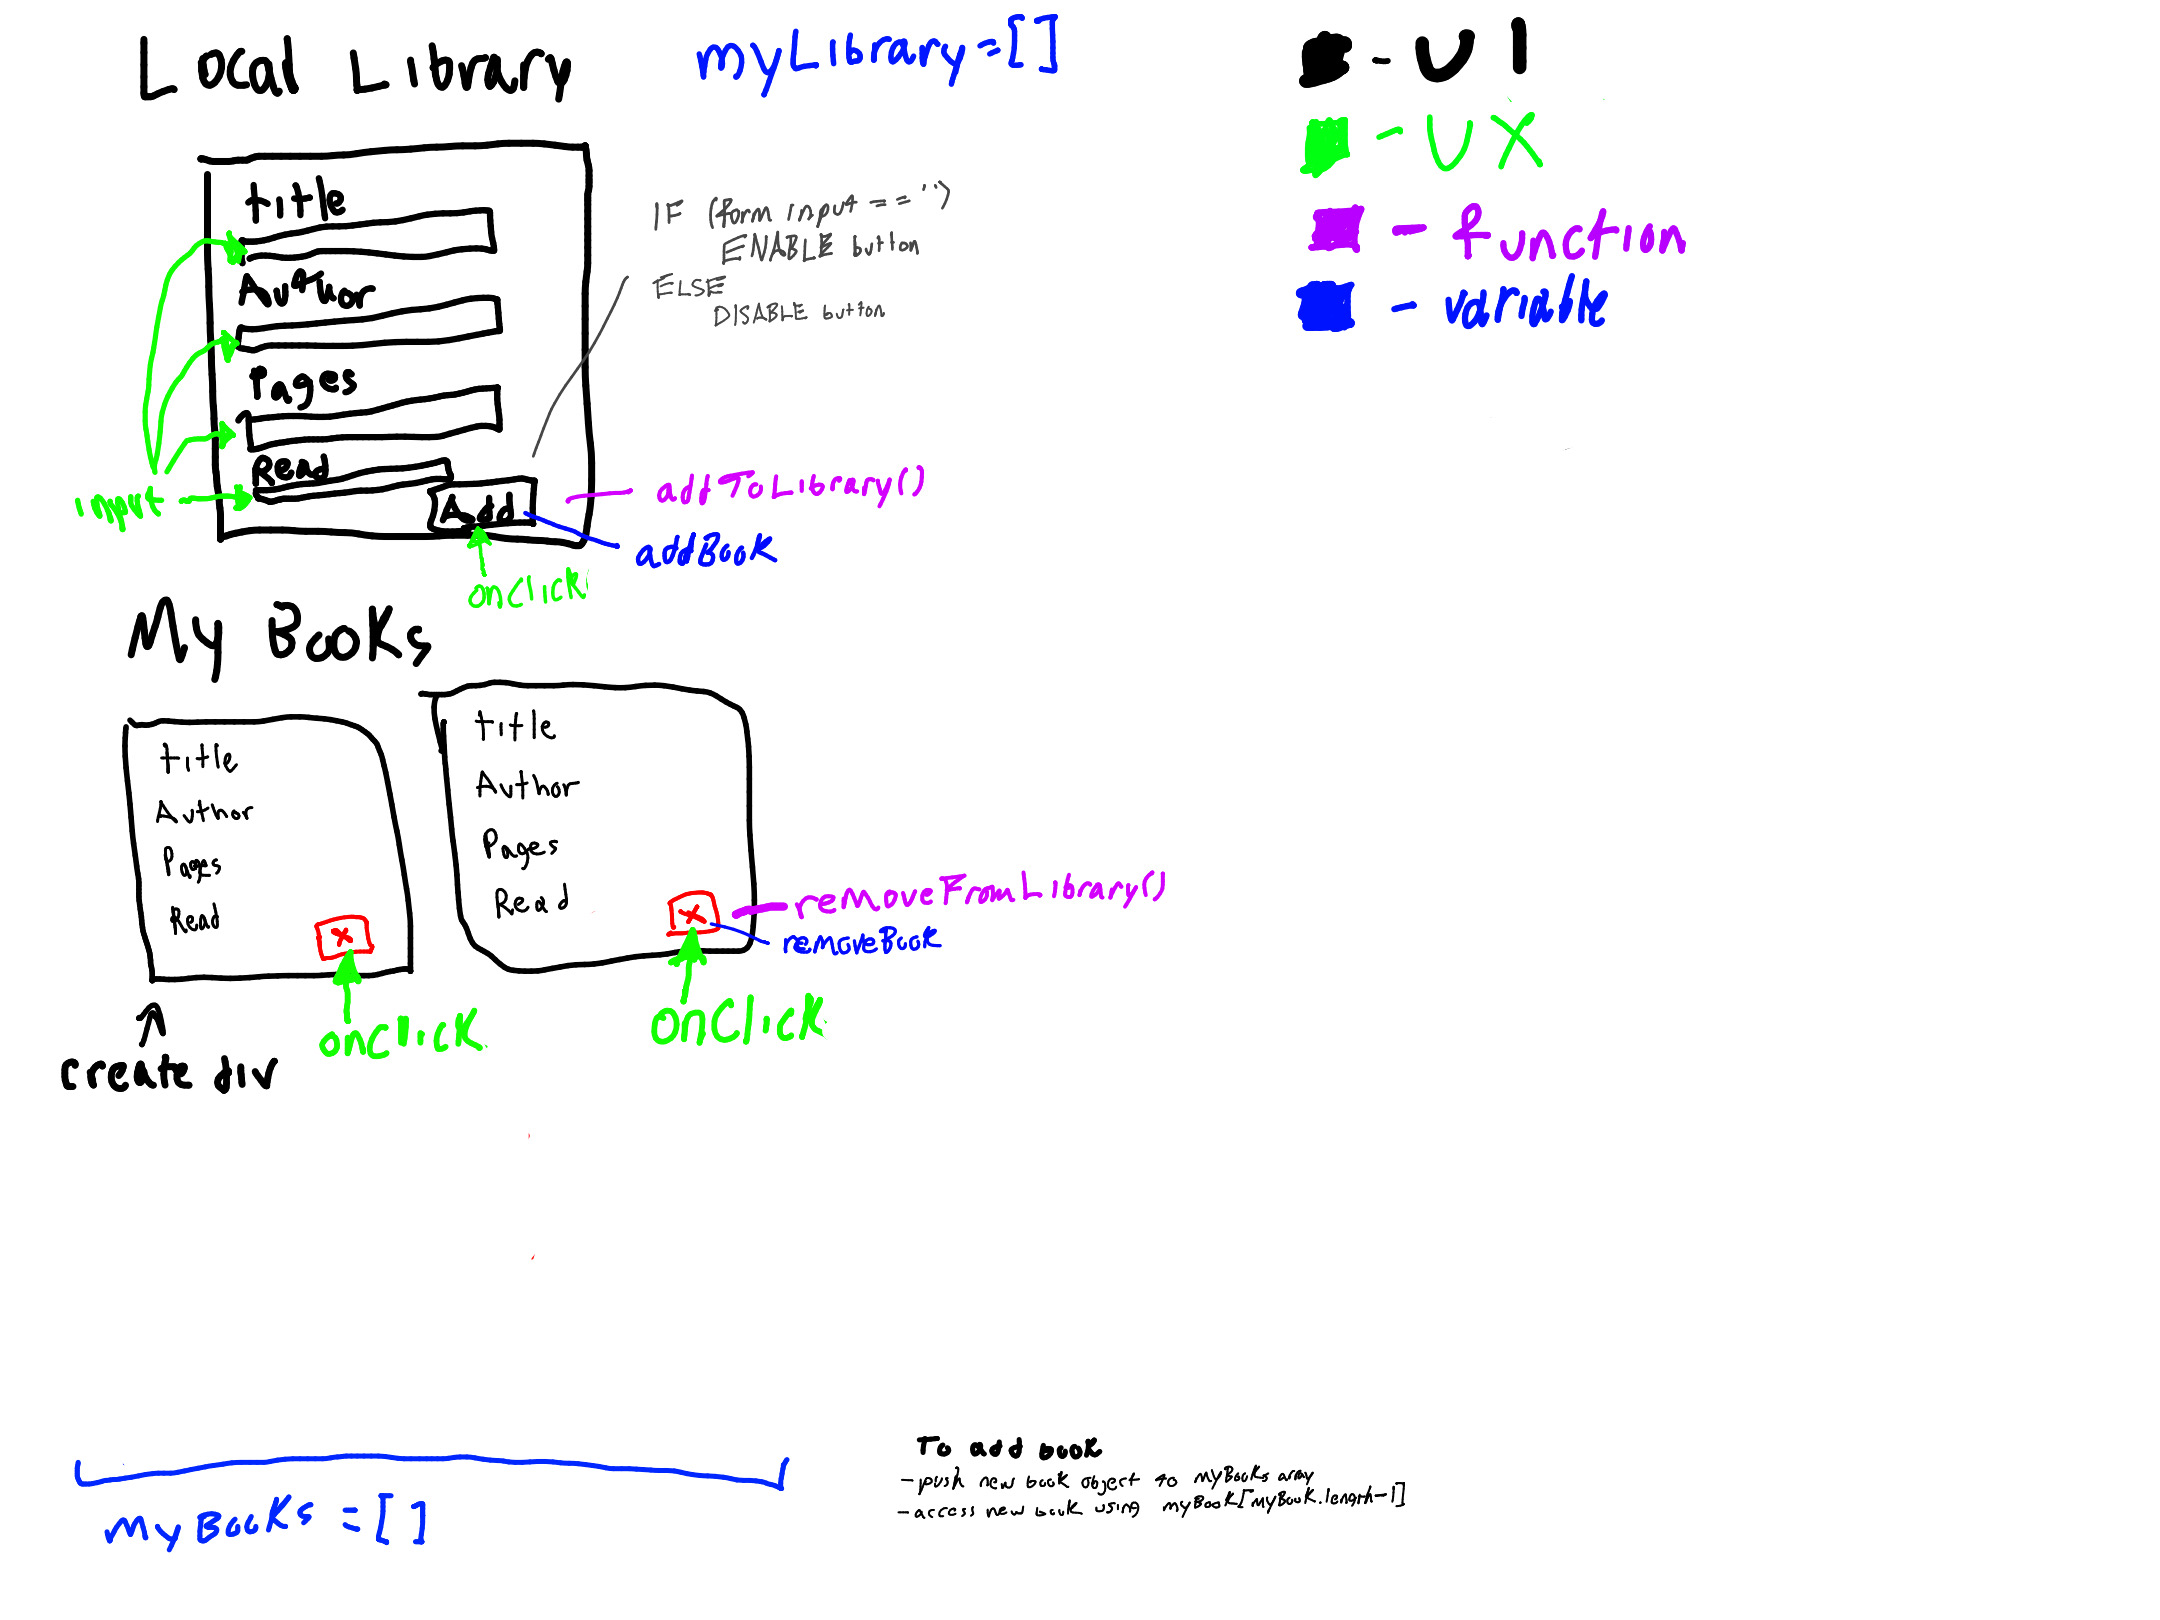 Local Library
myLibrary=[]
- UI
- UX
- function
- variable
title
Author
Pages
Read
Add
input
IF (form input == '')
ENABLE button
ELSE
DISABLE button
addToLibrary()
addBook
onclick
My Books
title
Author
Pages
Read
x
onclick
create div
title
Author
Pages
Read
x
removeFromLibrary()
removeBook
onclick
myBooks = []
To add book
-push new book object to myBooks array
-access new book using myBook[myBook.length-1]